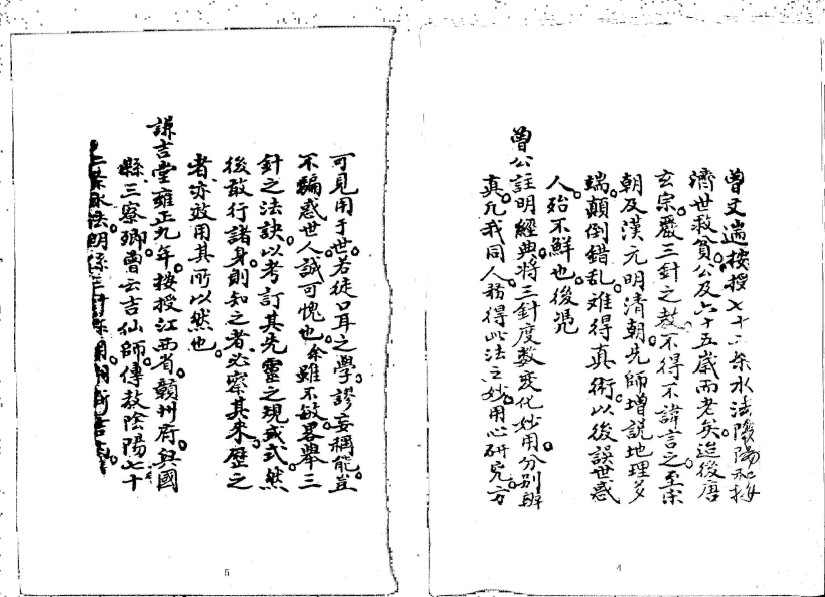 曾文遄按授七十二條水法陰陽和按
濟世救貧公及六十五歲而老矣迨後唐
玄宗嚴三針之教不得不諱言之至宋
朝及漢元明清朝先師增説地理多
端顛倒錯乱难得真術以後誤世惑
人殆不鮮也後憑
曾公註明經典將三針度数变化妙用分别辨
真凡我同人務得此法之妙用心研究方
4
可見用于世若徒口耳之學謬妄稱能豈
不騙惑世人誠可愧也余雖不敏畧舉三
針之法訣以考訂其先靈之現或式然
後敢行諸身則知之者必察其来歷之
者亦效用其所以然也
謙吉堂雍正九年按授江西省贛州府興國
縣三寮鄉曾云吉仙師傳教陰陽七十
二條水法
5